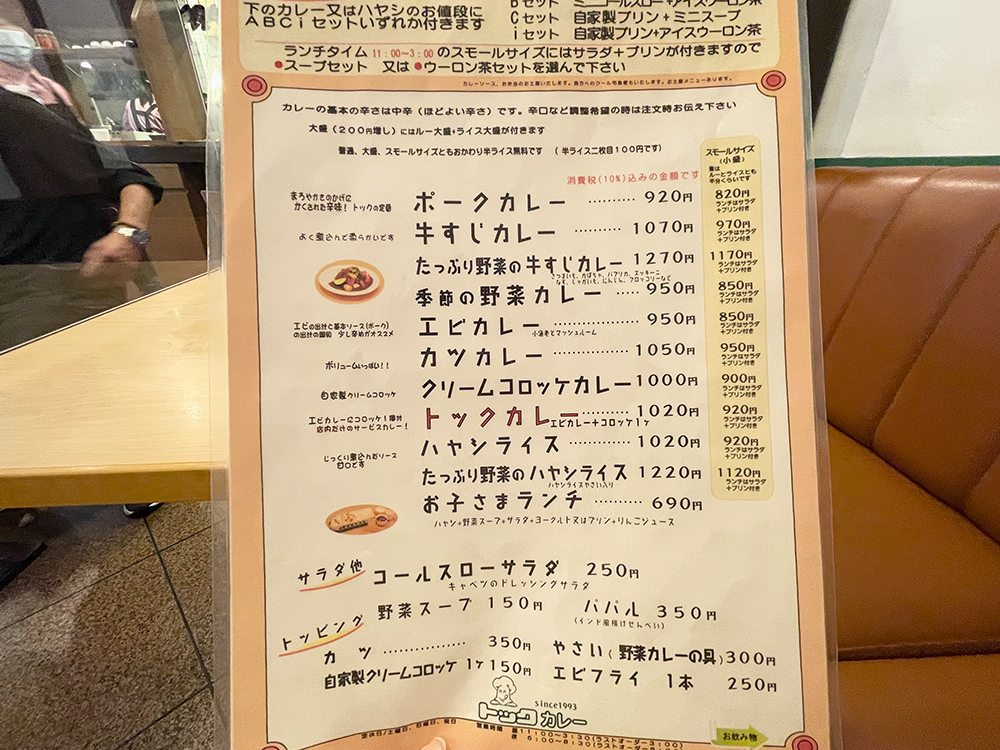 下のカレー又はハヤシのお値段に
ABCiセットいずれか付きます
Bセット ミニコールスロー+アイスウーロン茶
Cセット 自家製プリン+ミニスープ
iセット 自家製プリン+アイスウーロン茶
ランチタイム 11:00~3:00 のスモールサイズにはサラダ+プリンが付きますので
●スープセット 又は ●ウーロン茶セットを選んで下さい
カレーの基本の辛さは中辛(ほどよい辛さ)です。辛口など調整希望の時は注文時お伝え下さい
大盛(200円増し)にはルー大盛+ライス大盛が付きます
普通、大盛、スモールサイズともおかわり半ライス無料です (半ライス二枚目100円です)
消費税(10%)込みの金額です
スモールサイズ
(小盛)
量は
ルーとライスとも
半分くらいです
まろやかさのかげに
かくされた辛味!トックの定番
ポークカレー ………… 920円
820円
ランチはサラダ
+プリン付き
よく煮込んで柔らかいです
牛すじカレー ………… 1070円
970円
ランチはサラダ
+プリン付き
たっぷり野菜の牛すじカレー 1270円
さつまいも、かぼちゃ、パプリカ、ズッキーニ
なす、じゃがいも、にんじん、ブロッコリーなど
1170円
ランチはサラダ
+プリン付き
季節の野菜カレー …… 950円
850円
ランチはサラダ
+プリン付き
エビの出汁と基本ソース(ポーク)
の出汁の調和 少し辛めがオススメ
エビカレー ………… 950円
小海老とマッシュルーム
850円
ランチはサラダ
+プリン付き
ボリュームいっぱい!!
カツカレー ………… 1050円
950円
ランチはサラダ
+プリン付き
自家製クリームコロッケ
クリームコロッケカレー 1000円
900円
ランチはサラダ
+プリン付き
エビカレーにコロッケ1個付
店内だけのサービスカレー!
トックカレー ………… 1020円
エビカレー+コロッケ1ヶ
920円
ランチはサラダ
+プリン付き
じっくり煮込んだソース
甘口です
ハヤシライス ………… 1020円
920円
ランチはサラダ
+プリン付き
たっぷり野菜のハヤシライス 1220円
ハヤシライスやさい入り
1120円
ランチはサラダ
+プリン付き
お子さまランチ ………… 690円
ハヤシ+野菜スープ+サラダ+ヨーグルト又はプリン+りんごジュース
サラダ他
コールスローサラダ 250円
キャベツのドレッシングサラダ
野菜スープ 150円
パパル 350円
(インド風揚げせんべい)
トッピング
カツ ………… 350円
やさい(野菜カレーの具)300円
自家製クリームコロッケ 1ヶ 150円
エビフライ 1本 250円
since1993
トックカレー
定休日/土曜日、日曜日、祝日
営業時間 昼11:00~3:30(ラストオーダー3:00)
夜 6:00~8:30(ラストオーダー8:00)
お飲み物